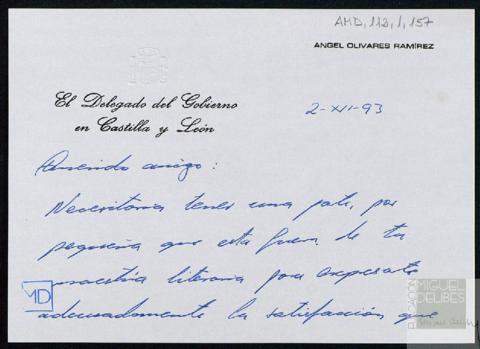 AMD, 112, 1, 157
ANGEL OLIVARES RAMÍREZ
El Delegado del Gobierno
en Castilla y León
2-XII-93
Querido amigo:
Necesitaría tener una parte, por
pequeña que esta fuera, de tu
maestría literaria para expresarte
adecuadamente la satisfacción que
MD
FUNDACIÓN
MIGUEL
DELIBES